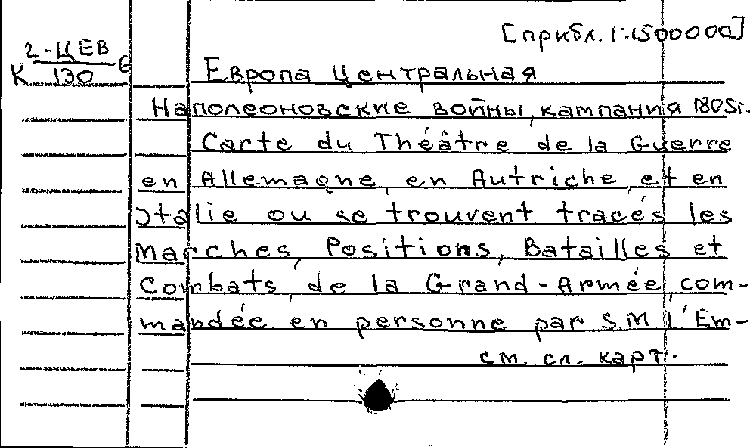 [прибл. 1:1500000]
2-ЦЕВ
К 130 6
Европа Центральная
Наполеоновские войны, кампания 1805г.
Carte du Théâtre de la Guerre
en Allemagne, en Autriche, et en
Italie ou se trouvent tracés les
Marches, Positions, Batailles et
Combats, de la Grand-Armée, com-
mandée en personne par S.M. l'Em-
см. сл. карт.